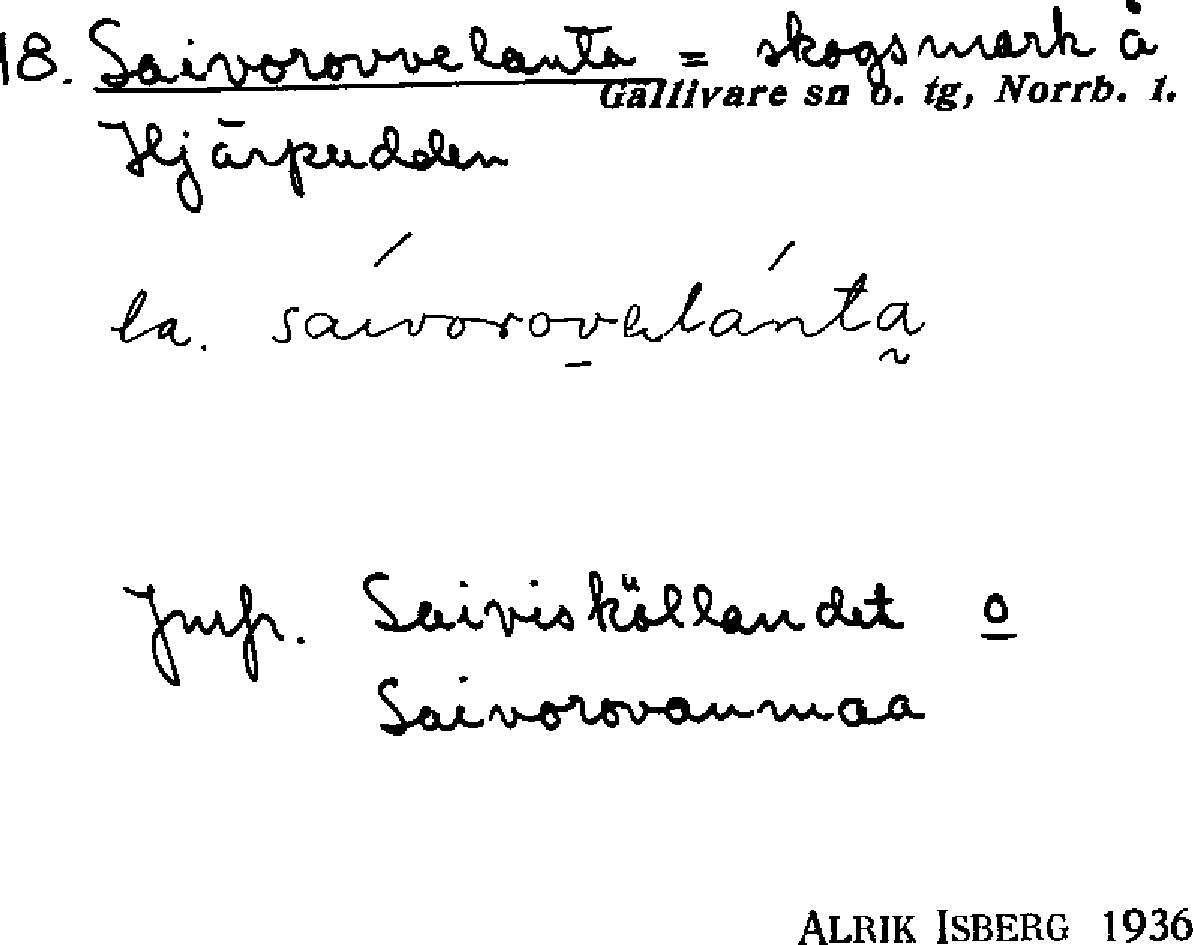 18. Saivorovvelanta = skogsmark å
Gällivare sn o. tg, Norrb. l.
Hjärpudden
la. sáivorovelánta
Jmfr. Saivisköllandet o
Saivorovanmaa
ALRIK ISBERG 1936